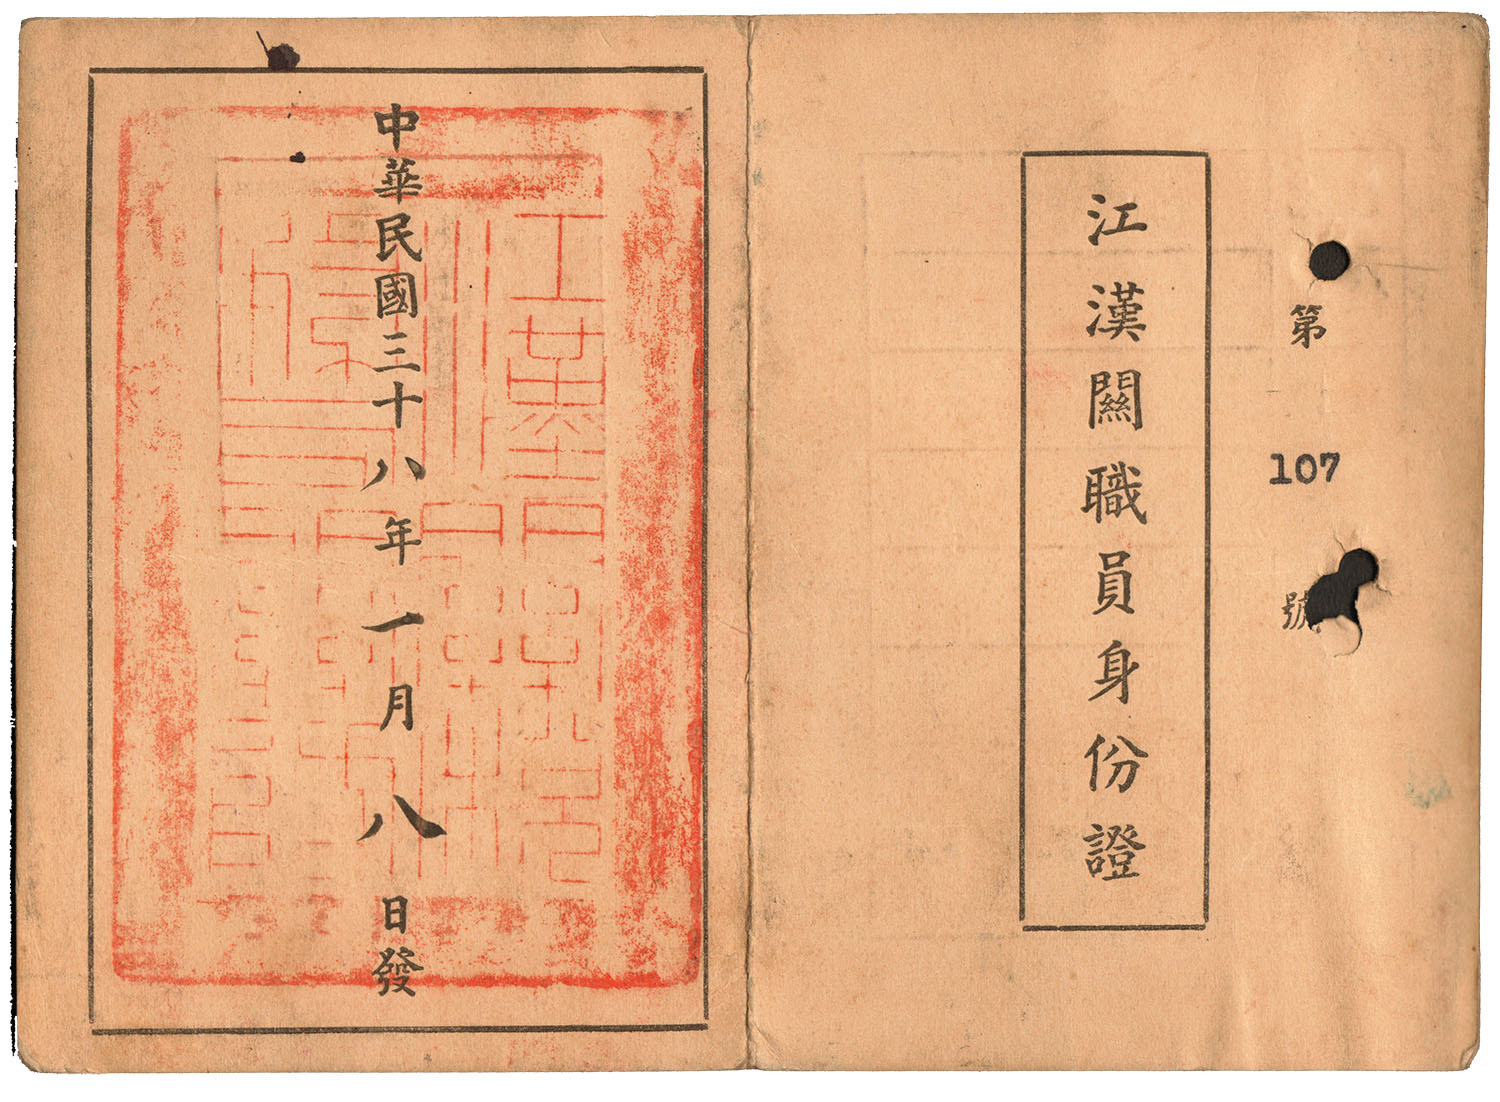 第 107 號
江漢關職員身份證
中華民國三十八年一月八日發